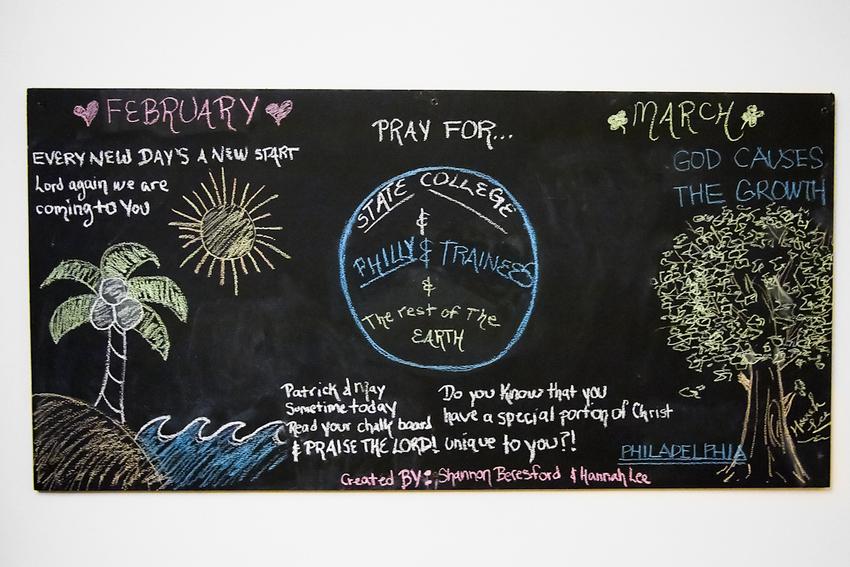 FEBRUARY
EVERY NEW DAY'S A NEW START
Lord again we are
coming to You
PRAY FOR...
STATE COLLEGE
&
PHILLY & TRAINEES
&
The rest of The
EARTH
MARCH
GOD CAUSES
THE GROWTH
Patrick & may
Sometime today
Read your chalk board
& PRAISE THE LORD!
Do you Know that you
have a special porton of Christ
unique to you?!
PHILADELPHIA
Hannah
Lee
Created BY: Shannon Beresford & Hannah Lee